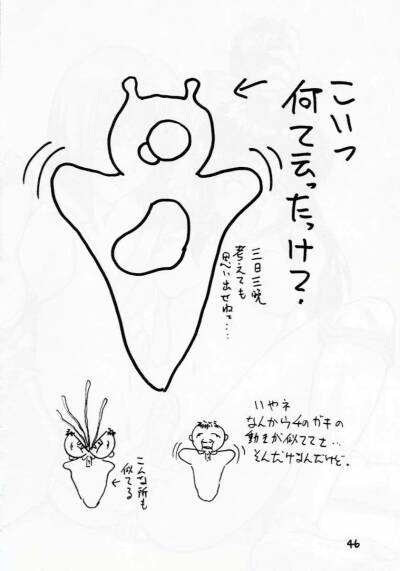 こいつ
何て云ったっけ?
三日三晩
考えても
思い出せねェ……
いやネ
なんかウチのガキの
動きが似ててさ…
そんだけなんだけど.
こんな所も
似てる
46